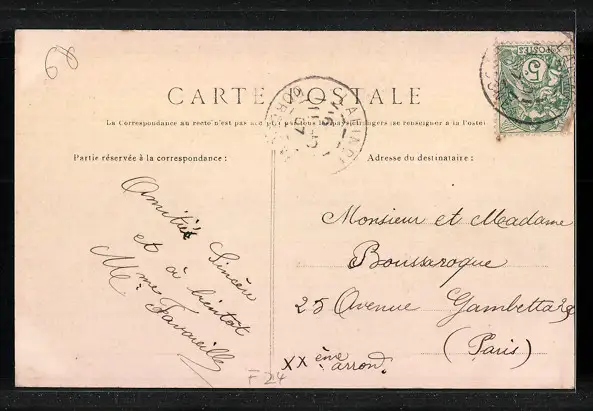 CARTE POSTALE
La Correspondance au recto n'est pas
se renseigner à la Poste
Partie réservée à la correspondance :
Adresse du destinataire :
5c
POSTES
Amitiés Sincère
et à bientot
Mme Favareille
Monsieur et Madame
Boussaroque
25 Avenue Gambetta
(Paris)
XXème arrond.
F24